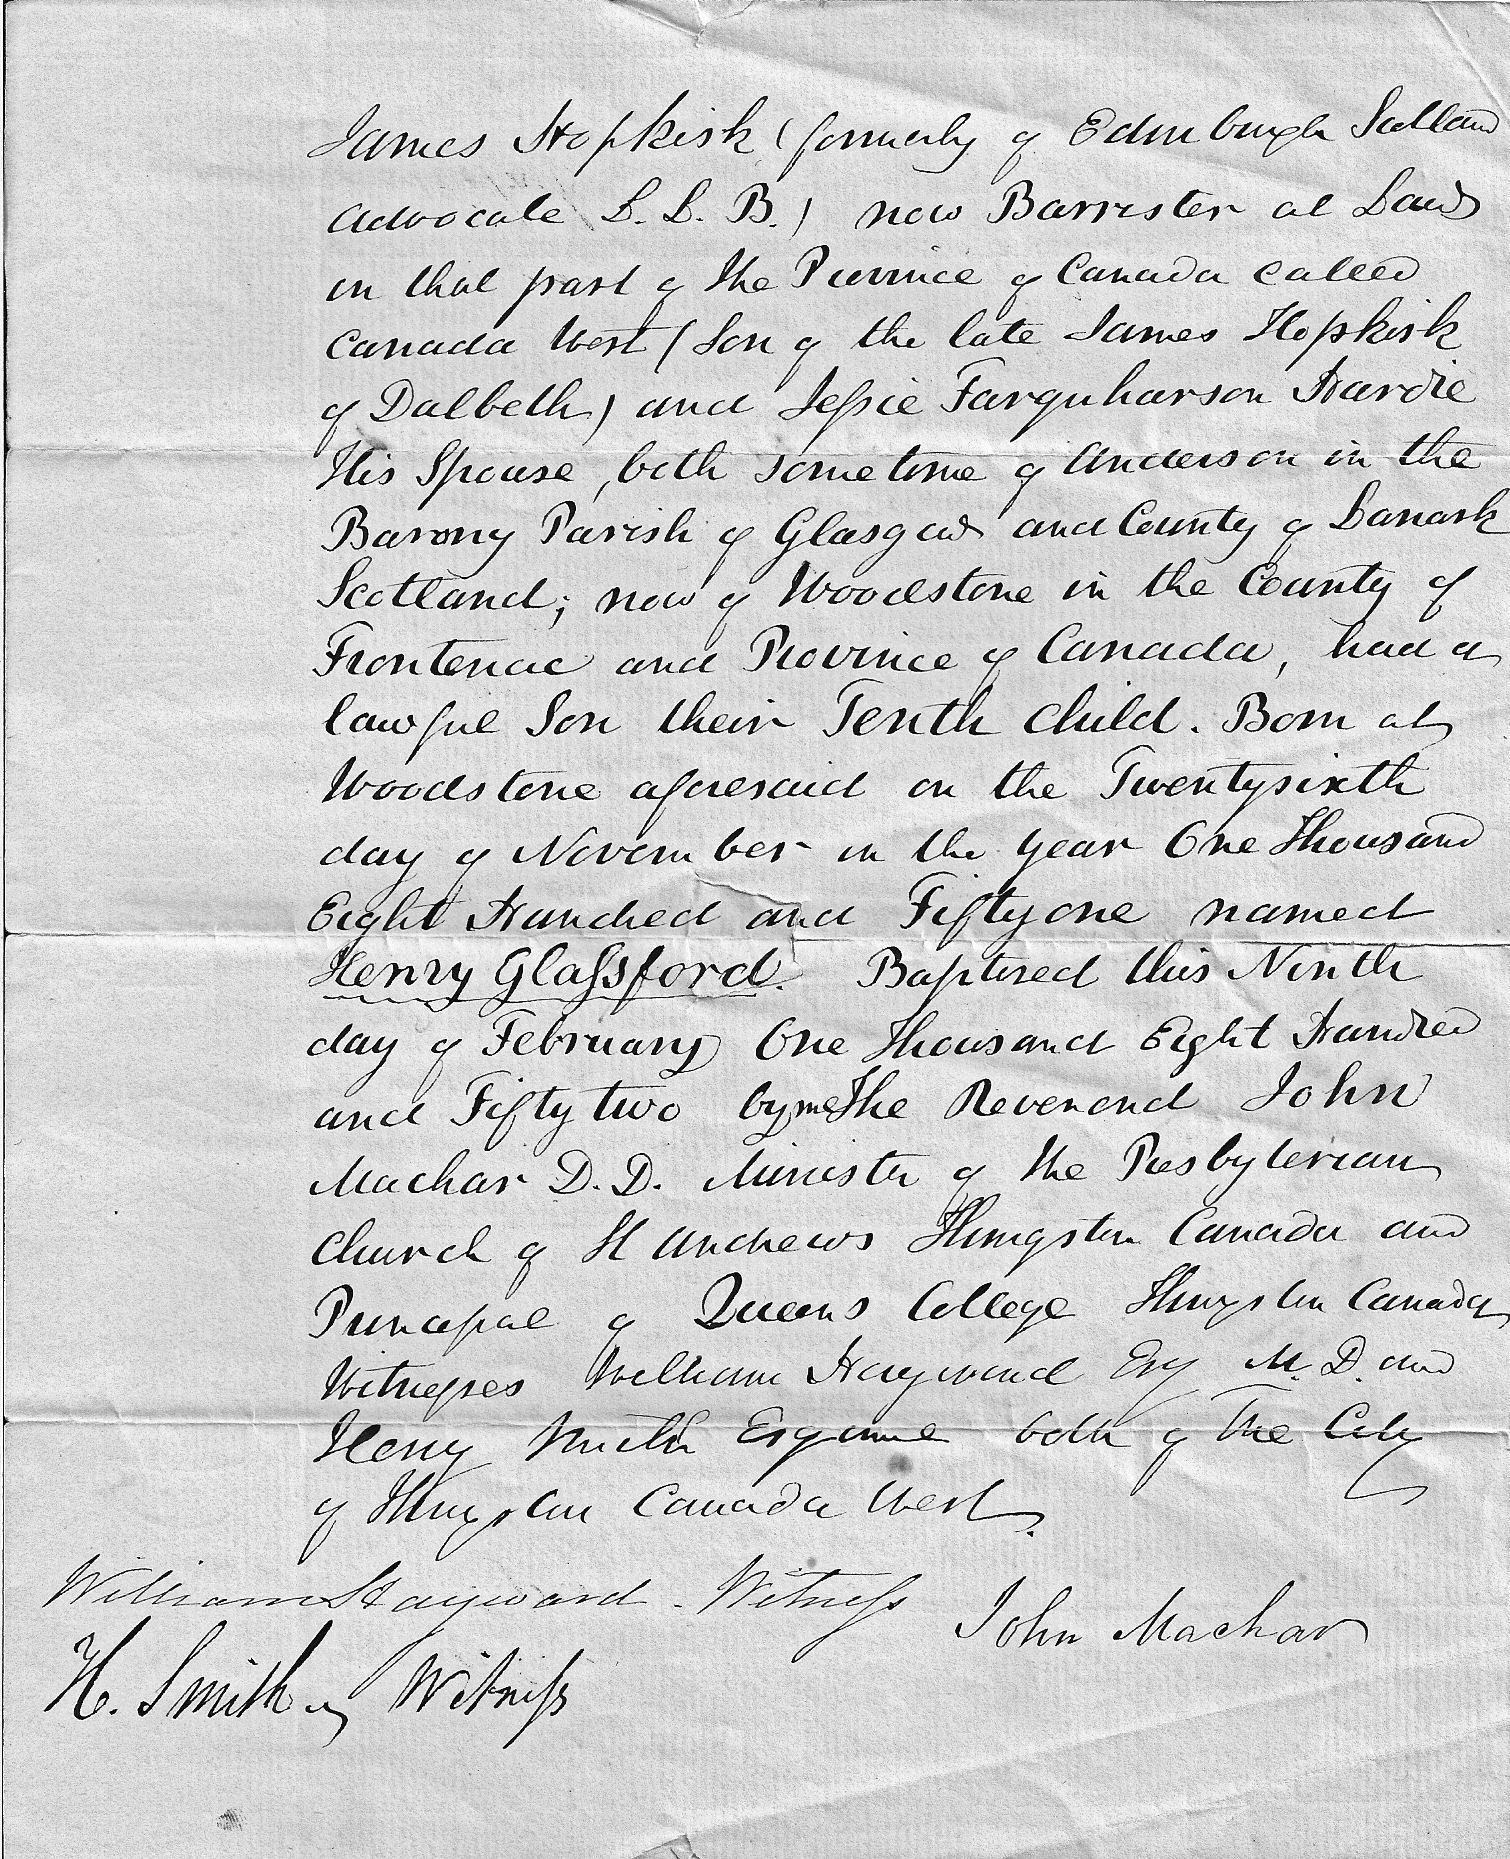 James Hopkirk (formerly of Edinburgh Scotland
Advocate L. L. B.) now Barrister at Law
in that part of the Province of Canada called
Canada West (Son of the late James Hopkirk
of Dalbeth) and Jessie Farquharson Hardie
His Spouse, both sometime of Anderson in the
Barony Parish of Glasgow and County of Lanark
Scotland; now of Woodstone in the County of
Frontenac and Province of Canada, had a
lawful Son their Tenth Child. Born at
Woodstone aforesaid on the Twentysixth
day of November in the year One Thousand
Eight Hundred and Fiftyone named
Henry Glassford. Baptized this Ninth
day of February One Thousand Eight Hundred
and Fifty two by me The Reverend John
Machar D. D. Minister of the Presbyterian
Church of St Andrews Kingston Canada and
Principal of Queens College Kingston Canada
Witnesses William Hayward Esq M. D. and
Henry Smith Esquire both of The City
of Kingston Canada West.
William Hayward. Witness
John Machar
H. Smith Witness